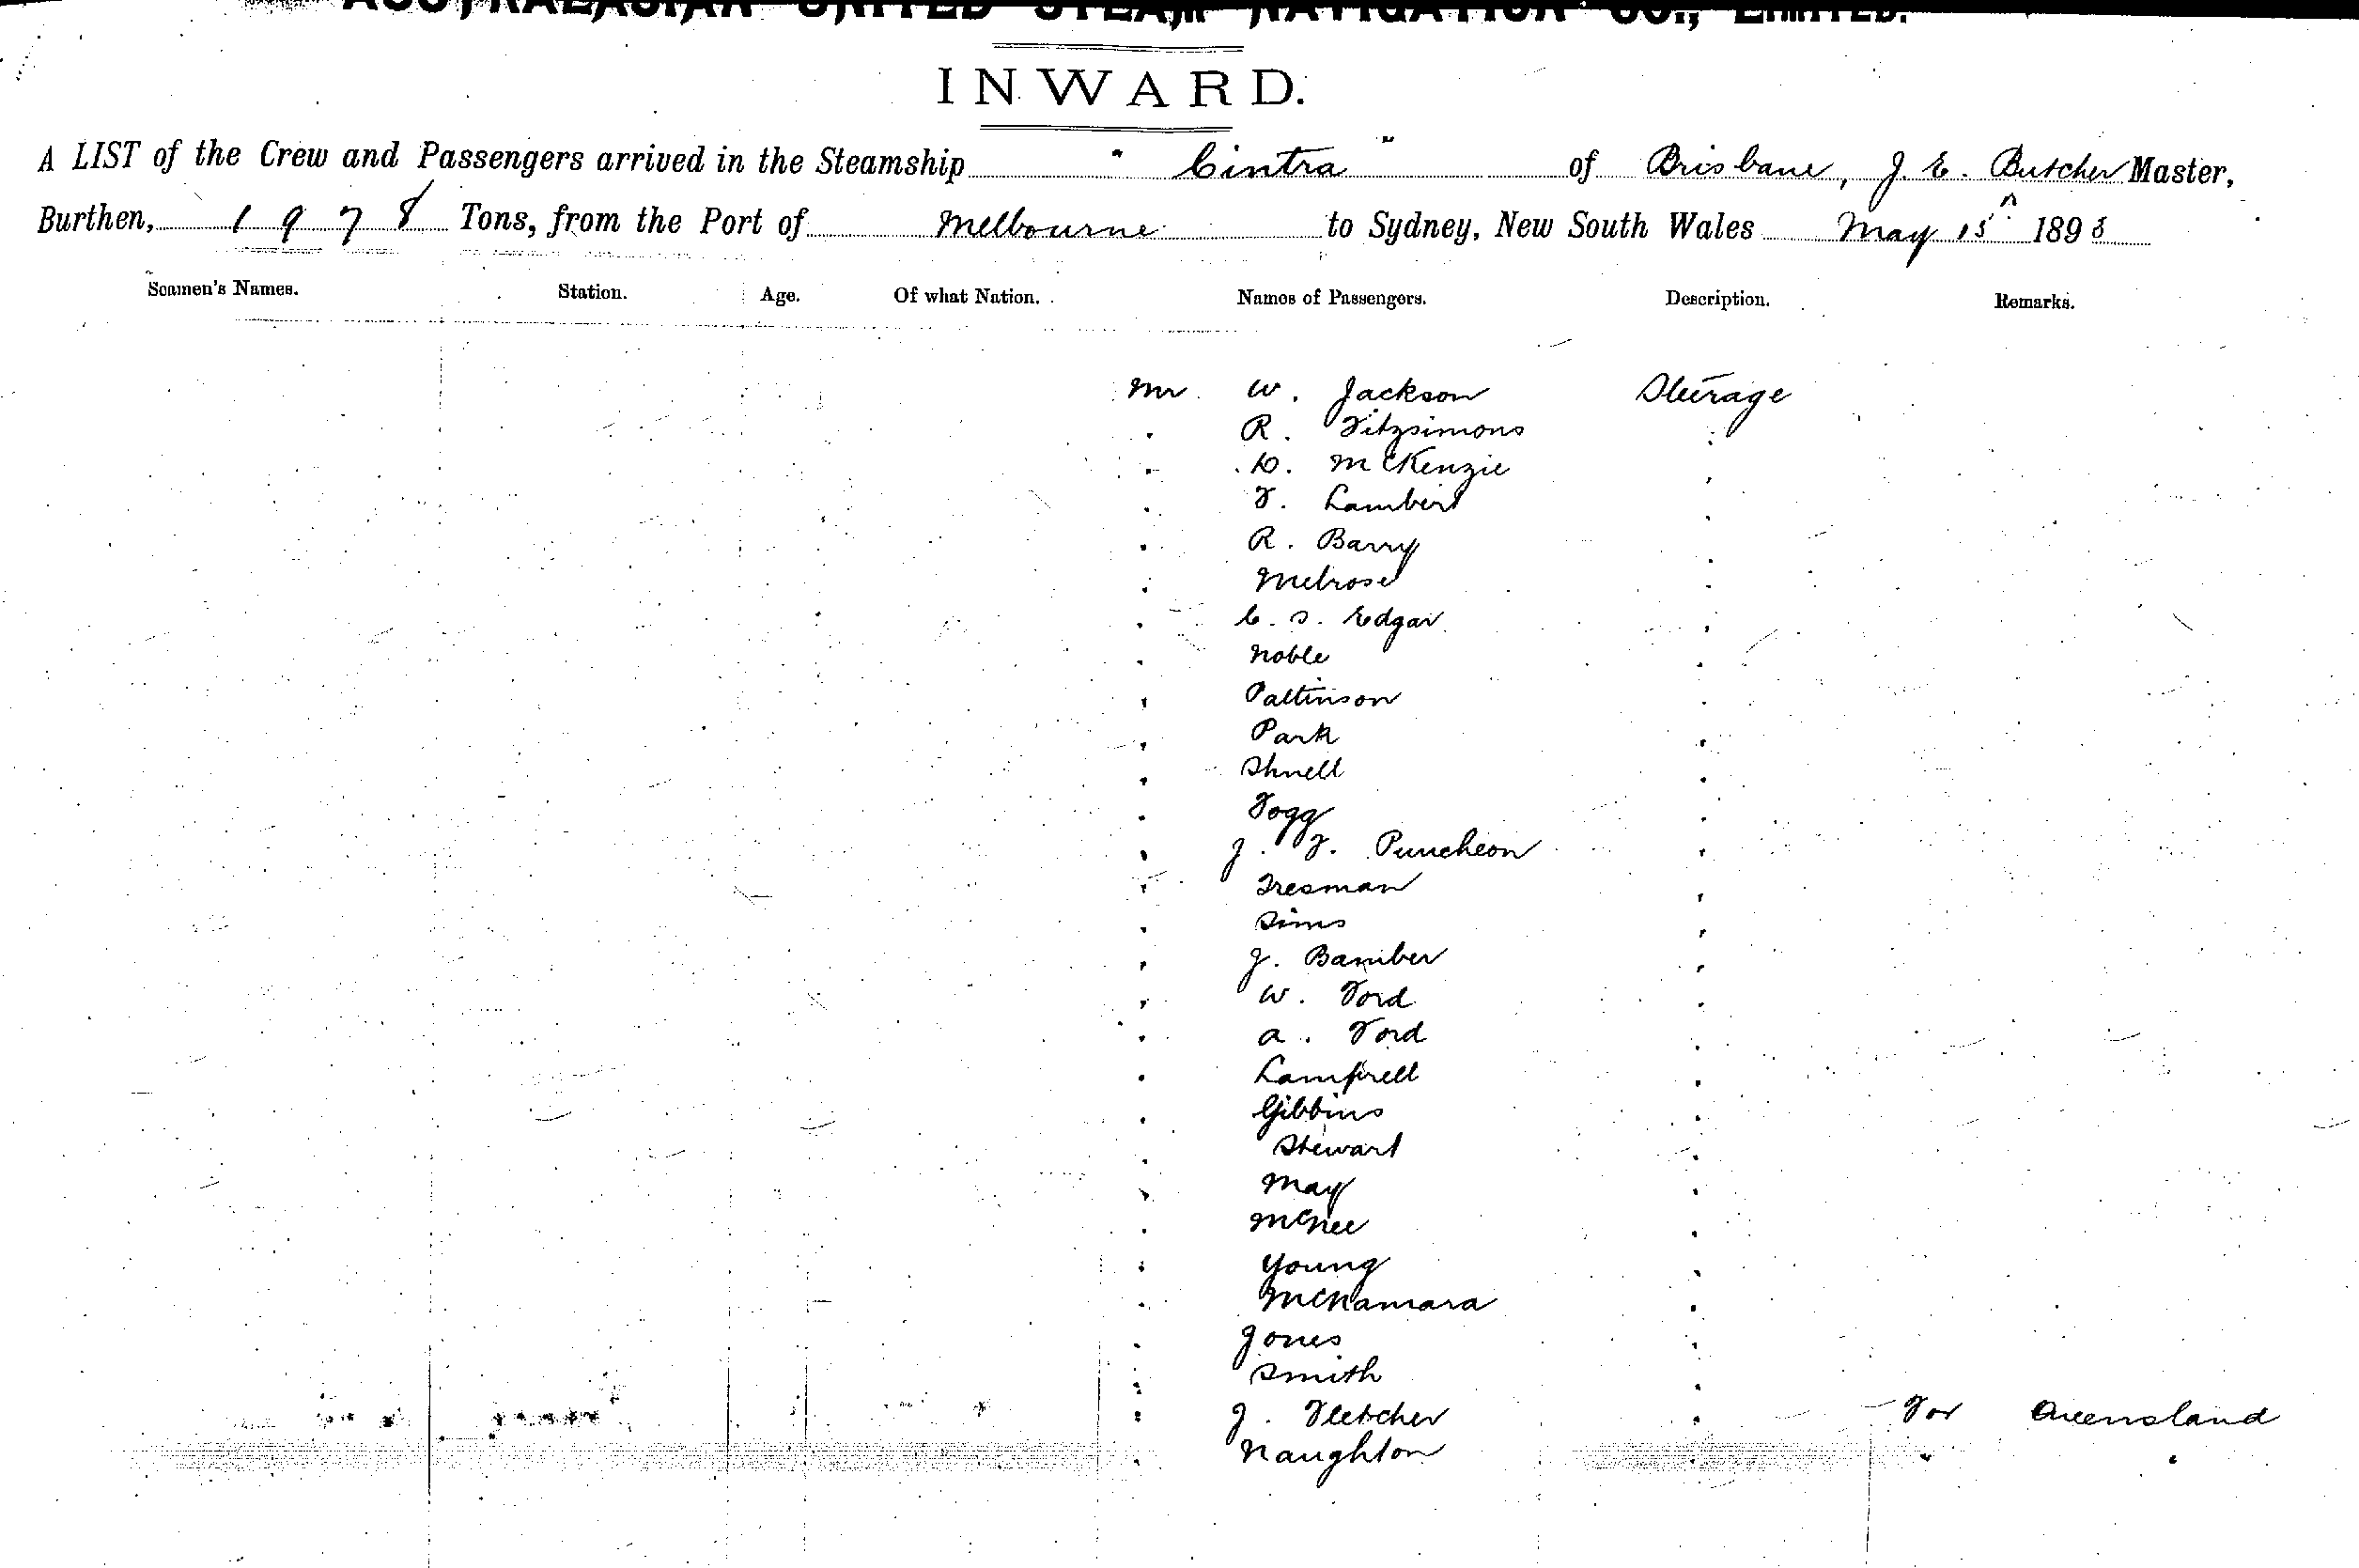 AUSTRALASIAN UNITED STEAM NAVIGATION CO., LIMITED.
INWARD.
A LIST of the Crew and Passengers arrived in the Steamship " Cintra " of Brisbane, J. E. Butcher Master,
Burthen, 1978 Tons, from the Port of Melbourne to Sydney, New South Wales May 15th 1895
Seamen's Names. Station. Age. Of what Nation. Names of Passengers. Description. Remarks.
Mr W. Jackson Steerage
" R. Fitzsimons "
" D. McKenzie "
" F. Lambert "
" R. Barry "
" Melrose "
" C. S. Edgar "
" Noble "
" Pattinson "
" Park "
" Shnell "
" Fogg "
" J. F. Puncheon "
" Tresman "
" Sims "
" J. Bamber "
" W. Ford "
" A. Ford "
" Lamprell "
" Gibbins "
" Stewart "
" May "
" McNee "
" Young "
" McNamara "
" Jones "
" Smith "
" J. Fletcher " For Queensland
" Naughton " "